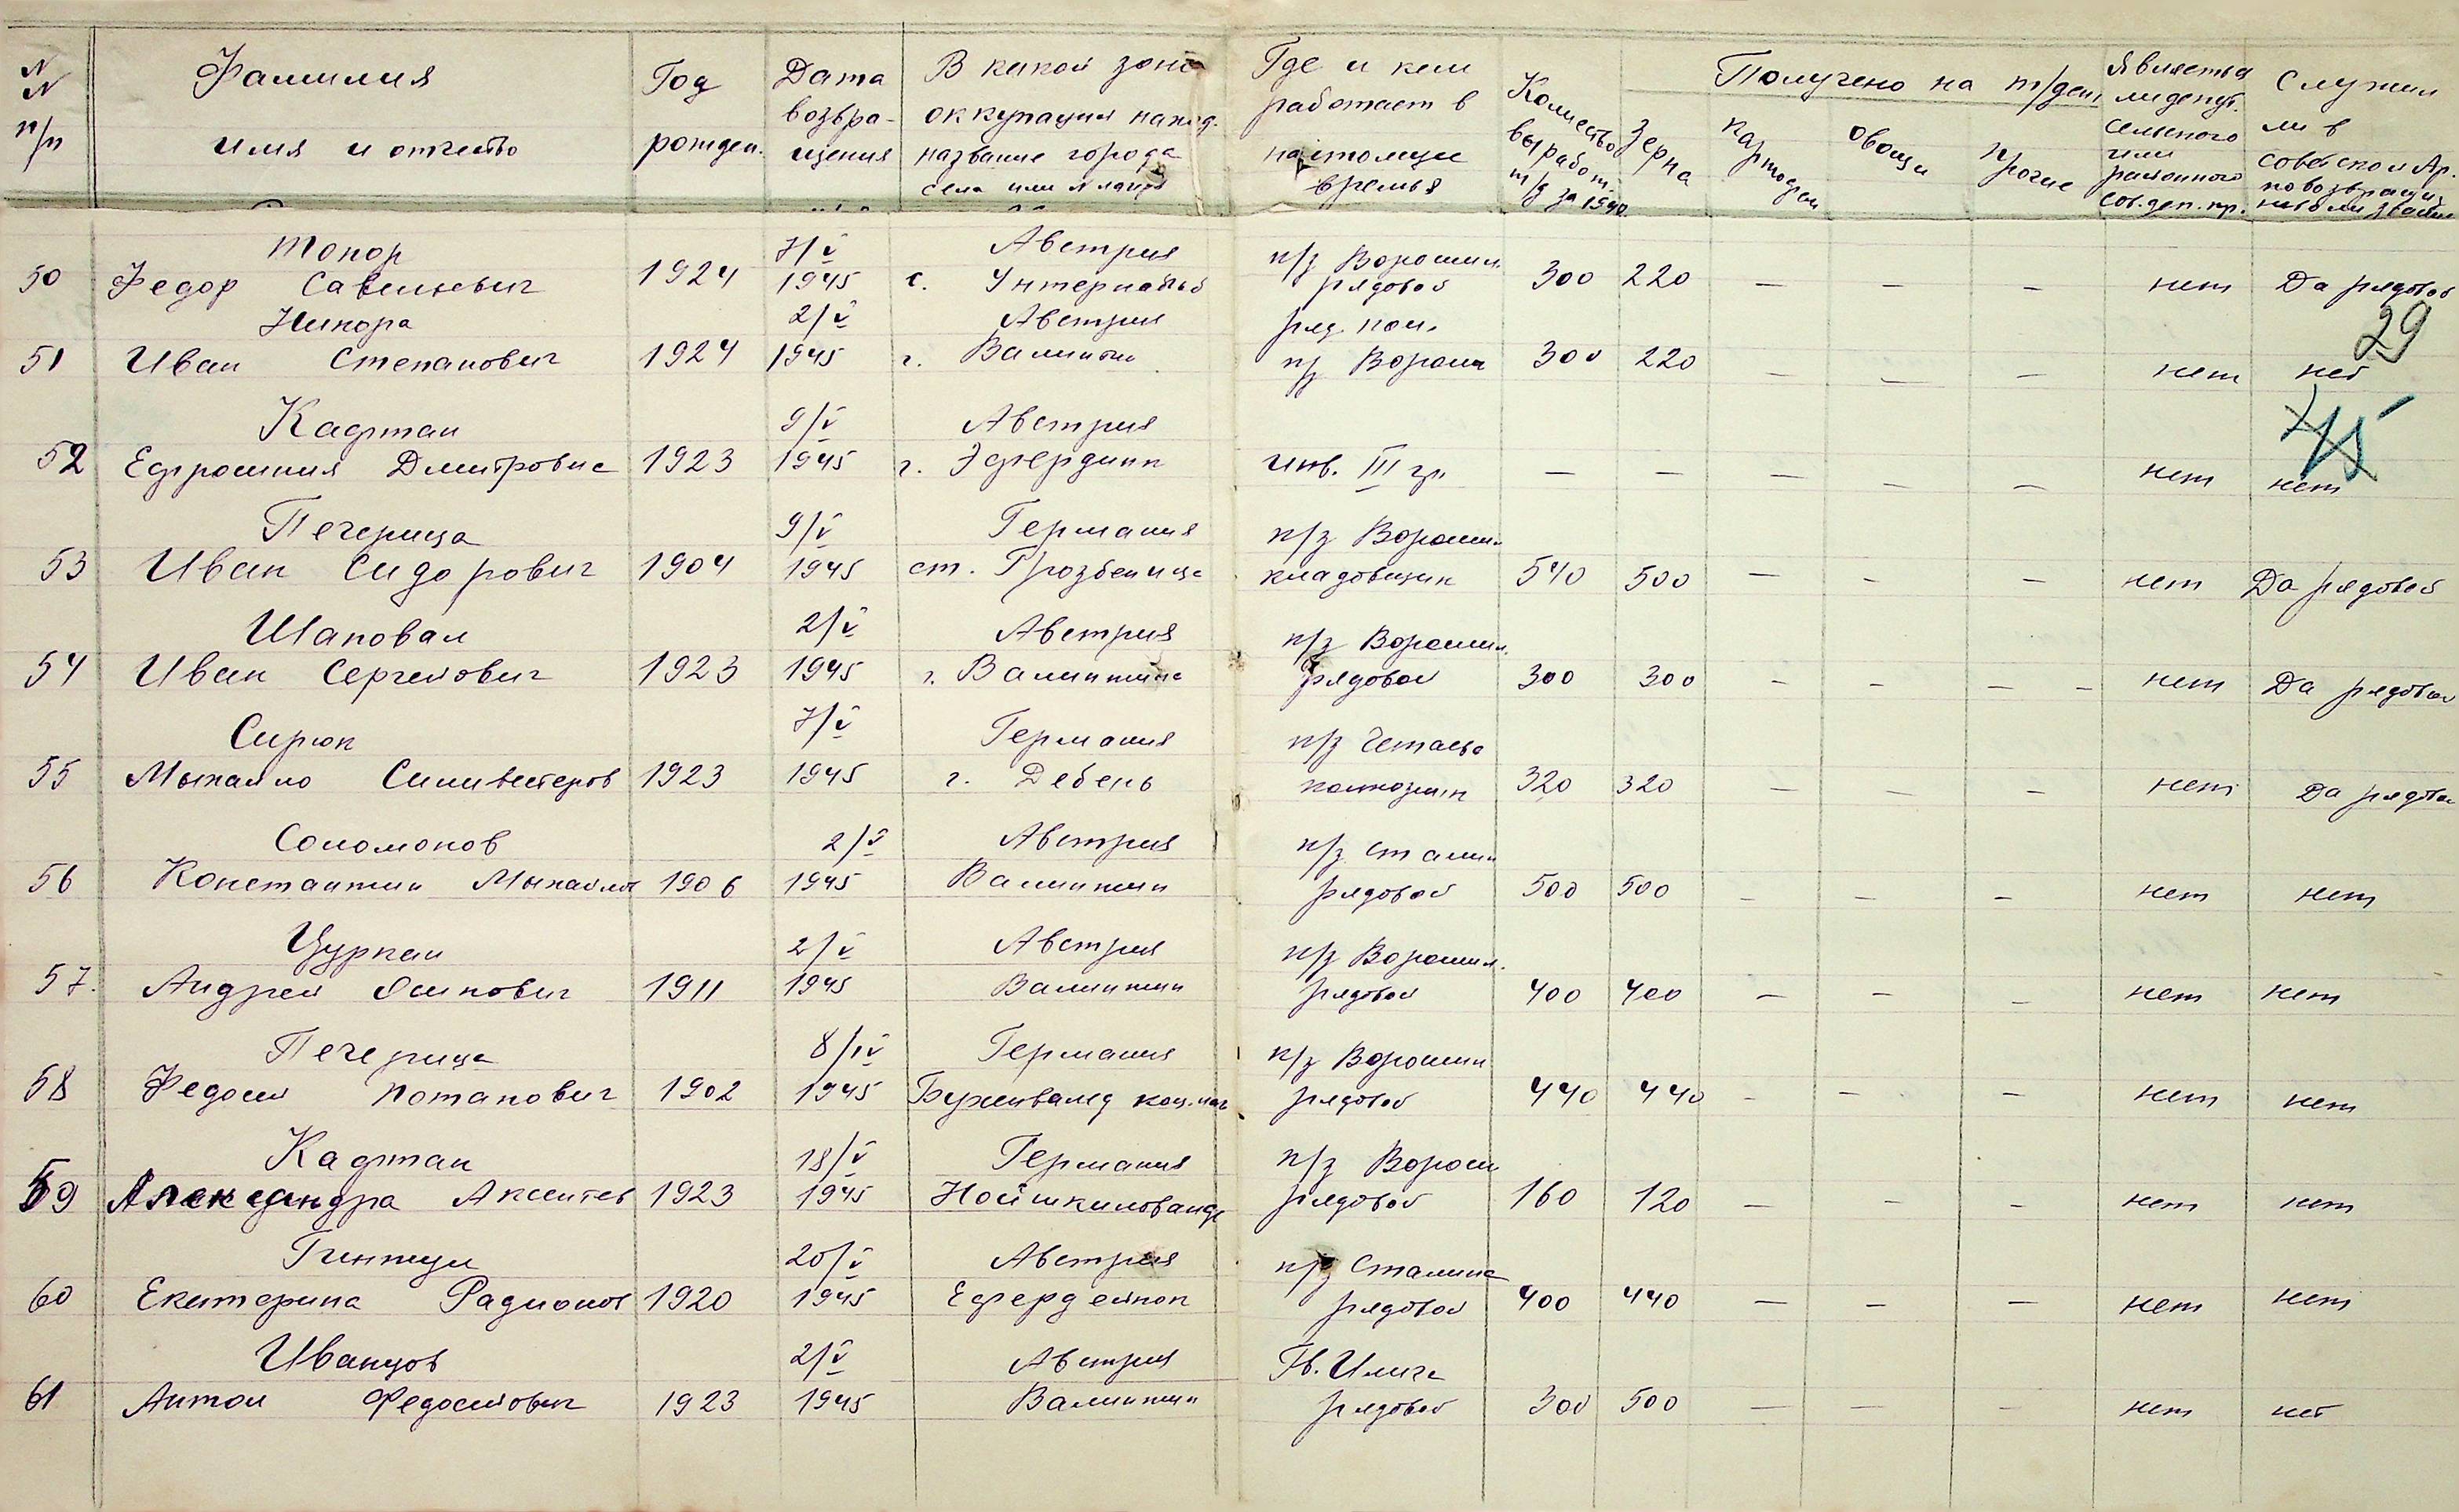 N N п/п
Фамилия имя и отчество
Год рожден.
Дата возвра-щения
В какой зоне оккупации наход. название города села или лагеря
Где и кем работает в настоящее время
Количество выработ. т/д за 1940.
Получено на т/день
Зерна
картофеля
Овощи
прочие
Является ли депут. сельского или районного сов. деп. тр.
Служил ли в советской Ар. по возвращ.
Топор 7/V Австрия п/з Ворошил.
50 Федор Савельевич 1924 1945 с. рядовой 300 220 — — — нет Да рядовой
2/V Австрия ряд. кол. 29
51 Иван Степанович 1924 1945 г. Валинтин п/з Ворош 300 220 — — — нет нет
Кафтан 9/V Австрия 45
52 Ефросиния Дмитровна 1923 1945 г. Эфердинк инв. III гр. — — — — — нет нет
Печерица 9/V Германия п/з Ворошил
53 Иван Сидорович 1904 1945 ст. кладовщик 540 500 — — — нет Да рядовой
Шаповал 2/V Австрия п/з Ворошил.
54 Иван Сергейович 1923 1945 г. Валинтина рядовой 300 300 — — — — нет Да рядовой
Сирюк 7/V Германия п/з
55 Михайло Сильвестеров 1923 1945 г. Дебень колхозник 320 320 — — — нет Да рядовой
Соломонов 2/V Австрия п/з Сталин
56 Константин Михайлов 1906 1945 Валинтин рядовой 500 500 — — — нет нет
Цуркан 2/V Австрия п/з Ворошил.
57. Андрей Осипович 1911 1945 Валинтин рядовой 400 400 — — — нет нет
Печерица 8/IV Германия п/з Ворошил
58 Федосий Потапович 1902 1945 Бухенвальд конц. лаг рядовой 440 440 — — — нет нет
Кафтан 18/V Германия п/з Ворош
59 Александра Аксентев 1923 1945 рядовой 160 120 — — — нет нет
20/V Австрия п/з Сталина
60 Екатерина Радионов 1920 1945 рядовой 400 440 — — — нет нет
Иванцов 2/V Австрия
61 Антон Федосийович 1923 1945 Валинтин рядовой 300 500 — — — нет нет